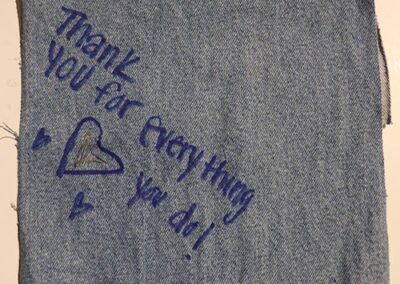 Thank
you for everything
you do!